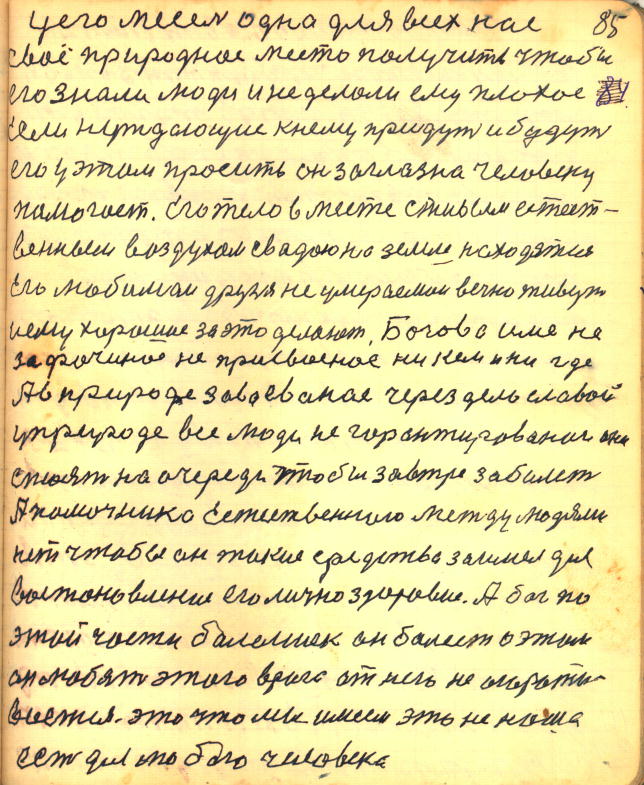 чего месем одна для всех нас 85
своё природное место получить чтобы
его знали люди и не делали ему плохое 84
Если нуждающие к нему придут и будут
его у этом просить он за глаз на человеку
памогает. Его тело в месте с тывым естест-
венным воздухом свадою на земле находятся
Его любимаи друзя не умераемаи вечно живут
и ему хорошие за это делают. Богова име не
зафрочиное не присвоеное ни кем и ни где
А в природе завоеваное через дель славой
у природе все люди не горонтированаи они
стоят на очереди чтобы завтре забалет
А помочника Естественного между людями
нет чтобы он такие средства заимел для
востоновление его лично здоровие. А бог по
этой части балельшек он балеет о этом
он любят этого врага от него не огороти-
воется. это что мы имеем это не наша
ест для любого человека